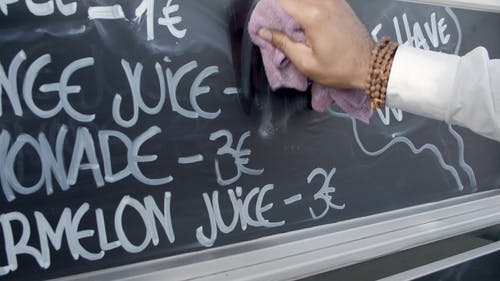 - 1€
NGE JUICE -
MONADE - 3€
RMELON JUICE - 3€
HAVE
W